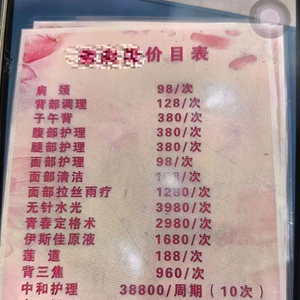 价目表
肩 颈 98/次
背部调理 128/次
子午背 380/次
腹部护理 380/次
腿部护理 380/次
面部护理 98/次
面部清洁 168/次
面部拉丝雨疗 1280/次
无针水光 3980/次
青春定格术 2980/次
伊斯佳原液 1680/次
莲 道 188/次
背三焦 960/次
中和护理 38800/周期（10次）